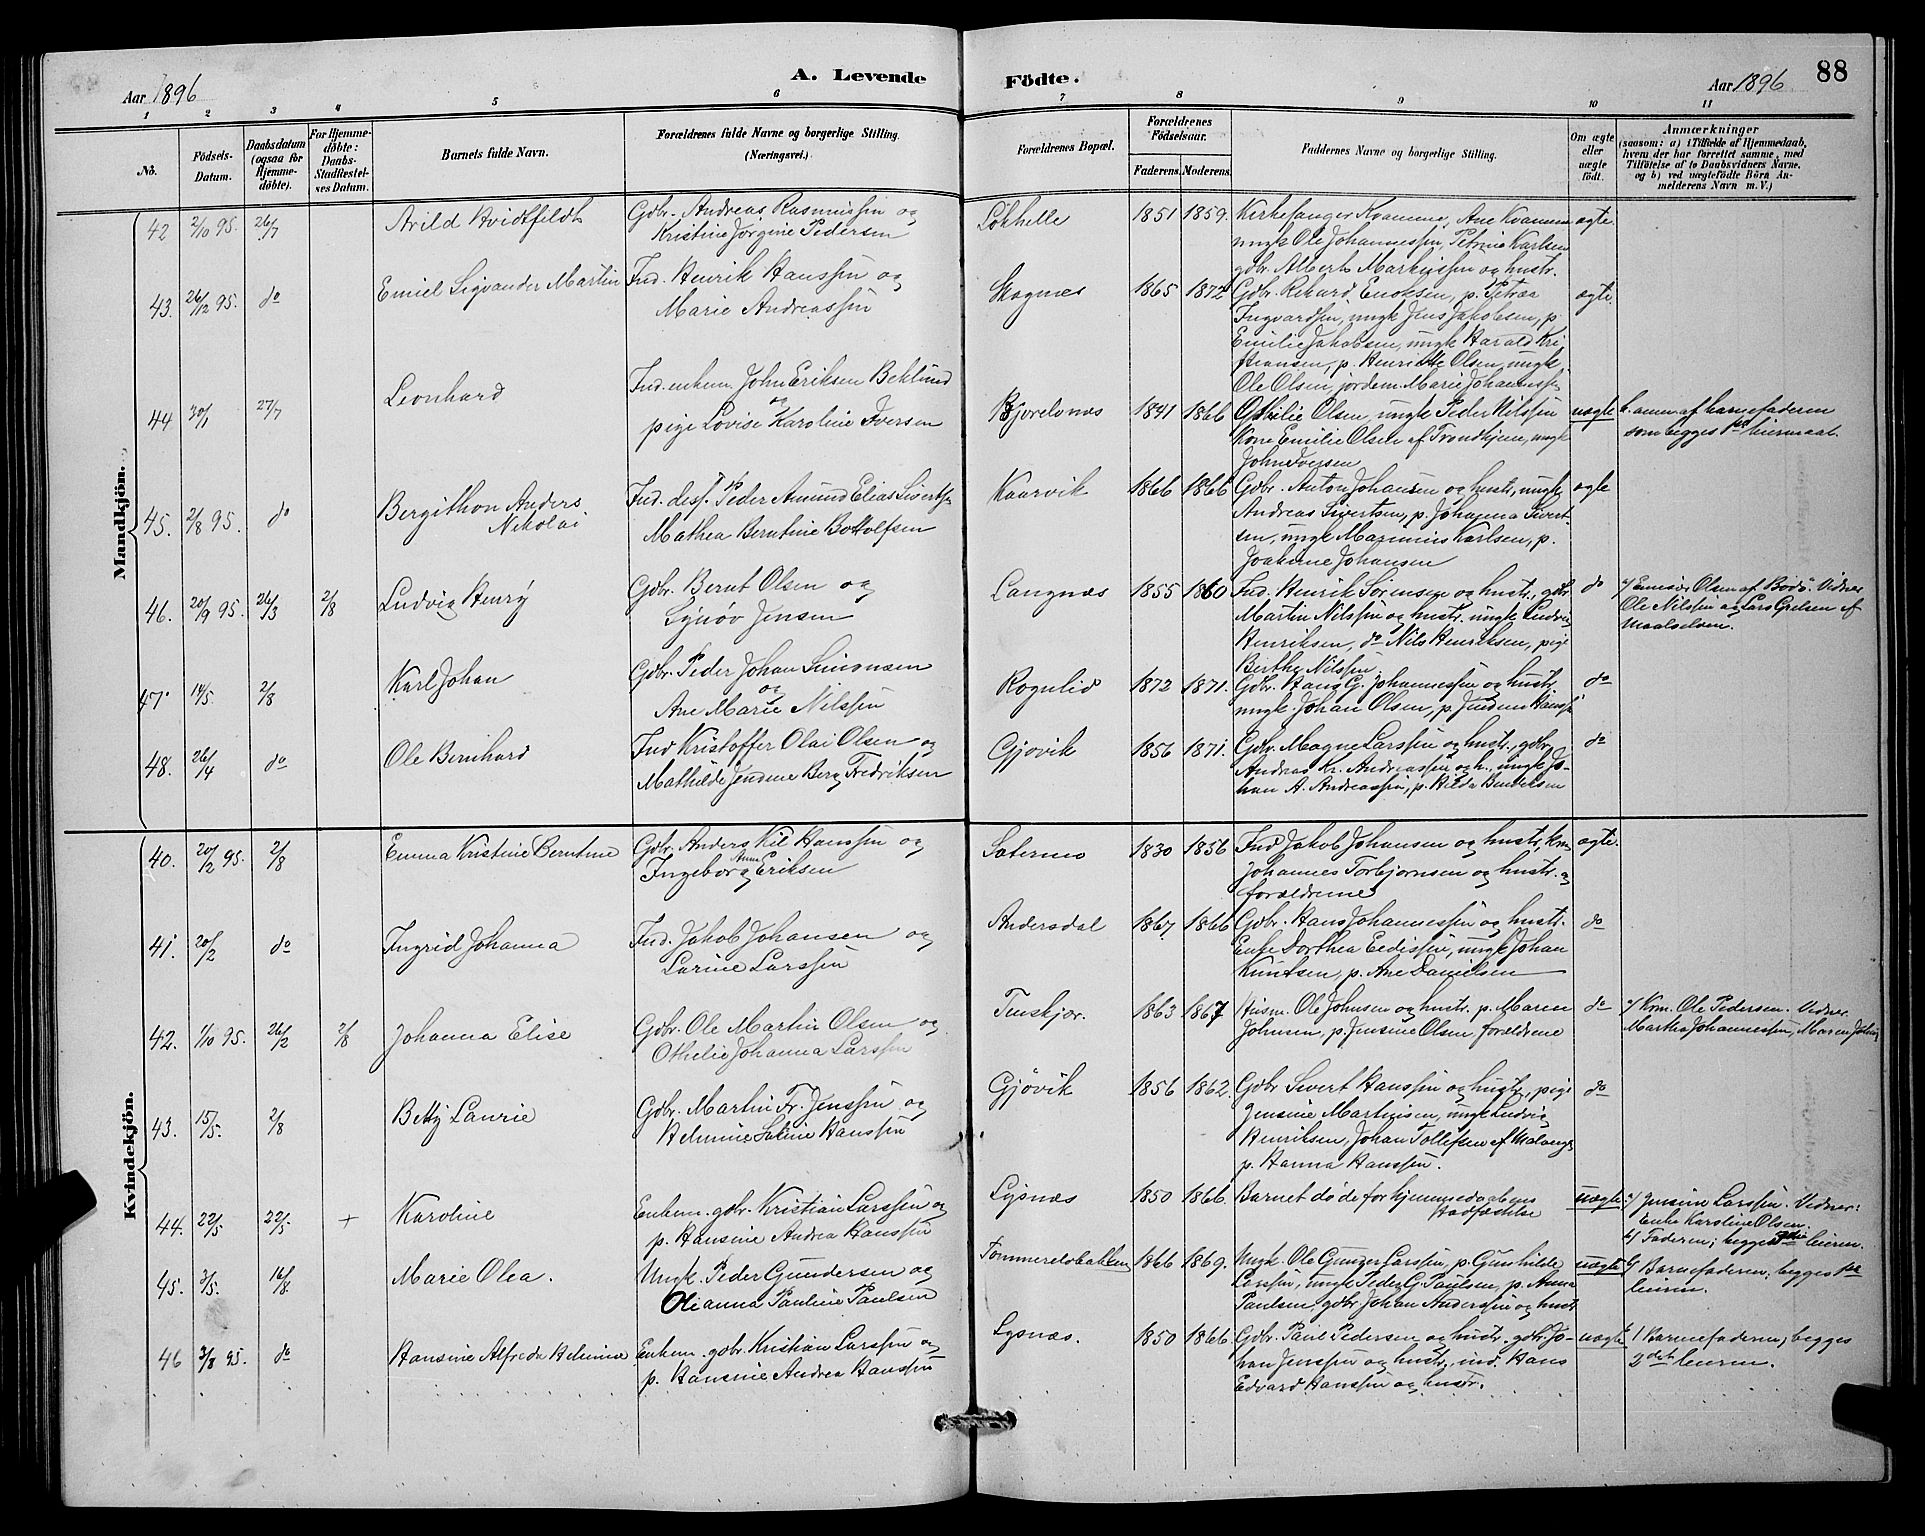 Aar 1896
A. Levende
Födte.
Aar 1896
88
1 2 3 4 5 6 7 8 9 10 11
No.
Födsels-
Datum.
Daabsdatum
(ogsaa for
Hjemme-
döbte).
For Hjemme-
döbte:
Daabs-
Stadfæstel-
ses Datum.
Barnets fulde Navn.
Forældrenes fulde Navne og borgerlige Stilling.
(Næringsvei.)
Forældrenes Bopæl.
Forældrenes
Födselsaar.
Faderens. Moderens.
Faddernes Navne og borgerlige Stilling.
Om ægte
eller
uægte
födt.
Anmærkninger
(saasom: a) i Tilfælde af Hjemmedaab,
hvem der har forrettet samme, med
Tilföielse af to Daabsvidners Navne,
og b) ved uægtefödte Börn An-
melderens Navn m. V.)
Mandkjön.
42 2/10 95. 26/7
Arild Hvidtfeldt
Gdbr. Andreas Rasmussen og
Kristine Jørgine Pedersen
Løkhelle
1851 1859.
Kirkesanger Kvamme, Ane Kvamme
ungk Ole Johannessen, Petrine Karlsen
gdbr. Albert Markussen og hustr.
ægte.
43. 26/12 95. do
Emiel Sigvander Martin
Ind. Henrik Hanssen og
Marie Andreassen
Skognes
1865 1872
Gdbr. Rikard Enoksen, p. Petræa
Ingvardsen, ungk Jens Jakobsen, p
Emilie Jakobsen, ungk Harald Kri
stiansen, p. Henriette Olsen, ungk
Ole Olsen, jordem. Marie Johannessen
ægte.
44 30/1 27/7
Leonhard
Ind. enkem. John Eriksen Beklund
og
pige Lovise Karoline Iversen
Bjorelvnæs
1841 1866
Othilie Olsen, ungk Peder Nilssen
Kone Emilie Olsen af Trondhjem, ungk
John Iversen
uægte
b. anm af barnefaderen
som begges 1ste leiermaal.
45. 2/8 95. do
Bergithon Anders
Nikolai
Ind. desf. Peder Amund Elias Sivertsen
Mathea Berntine Bottolfsen
Kaarvik
1866 1866
Gdbr. Anton Johansen og hustr, ungk
Andreas Sivertsen, p. Johanna Sivert-
sen, ungk Marinius Karlsen, p.
Joakime Johansen
ægte
46. 20/9 95. 26/3 2/8
Ludvig Henry
Gdbr. Bernt Olsen og
Synøv Jensen
Langnæs
1855 1860
Ind. Henrik Sörensen og hustr., gdbr
Martin Nilssen og hustr. ungk Ludvig
Henriksen, do Nils Henriksen, pige
Berthe Nilssen.
do
Olsen af Bodö. Vidner
Ole Nilssen og Lars Grelsen af
Maalselven.
47. 14/5. 2/8
Karl Johan
Gdbr. Peder Johan Simonsen
og
Ane Marie Nilssen
Rognlid
1872 1871.
Gdbr. Hans G. Johannessen og hustr.
ungk. Johan Olsen, p. Hanssen
do
48. 26/4 do
Ole Bernhard
Ind Kristoffer Olai Olsen og
Mathilde Jensine Berg Fredriksen
Gjøvik
1856 1871.
Gdbr. Magne Larssen og hustr, gdbr
Andreas Kr. Andreassen og h., ungk Jo-
han A. Andreassen, p. Hilda Bendiksen
do
Kvindekjön.
40. 20/2 95. 2/8
Emma Kristine Berntine
Gdbr. Anders Nil Hanssen og
Anna
Ingeborg Eriksen
Saternes
1830 1856
Ind Jakob Johansen og hustr, km
Johannes Torbjørnsen og hustr. og
forældrene
ægte.
41. 20/2 do
Ingrid Johanna
Ind. Jakob Johansen og
Larine Larssen
Andersdal
1867. 1866
Gdbr. Hans Johannessen og hustr.
Enke Dorthea Eedissen, ungk Johan
Knutsen, p. Ane Danielsen
do
42. 1/10 95. 26/2 2/8
Johanna Elise
Gdbr. Ole Martin Olsen og
Othelie Johanna Larssen
Tenskjær.
1863 1867
Husm. Ole Johnsen og hustr. p. Maren
Johnsen, p. Jensine Olsen forældrene
do
a/ Km. Ole Pedersen. Vidner
Martha Johannessen, Maren Johns
43. 15/5. 2/8
Betty Laurie
Gdbr. Martin Fr. Jenssen og
Helmine Saline Hanssen
Gjövik
1856 1862.
Gdbr Sivert Hanssen og hustr, pige
Jensine Martinsen, ungk Ludvig
Henriksen, Johan Tollefsen af Malangen
p. Hanna Hanssen.
do
44. 22/5 22/5. +
Karoline
Enkem. gdbr. Kristian Larssen og
p. Hansine Andrea Hanssen
Lysnæs
1850 1866.
Barnet døde før hjemmedaabens
stadfæstelse
uægte
a/ Jensine Larssen. Vidner:
Enke Karoline Olsen.
b/ Faderen; begges 3die leierm.
45. 3/5. 16/8
Marie Olea.
Ungk. Peder Gundersen og
Olianna Pauline Paulsen
Tömmerelvbakken
1866 1869.
Ungk. Ole Gunner Larssen, p. Gunhilde
Larssen, ungk Peder G. Paulsen, p. Anna
Paulsen, gdbr Johan Anderssen og hustr
uægte
b/ Barnefaderen; begges 1ste
leierm.
46 3/8 95. do
Hansine Alfreda Helmine
Enkem. gdbr. Kristian Larssen og
p. Hansine Andrea Hanssen
Lysnæs.
1850 1866.
Gdbr. Paul Pedersen og hustr. gdbr. Jo-
han Jenssen og hustr, ind. Hans
Edvard Hanssen og hustr.
uægte
Barnefaderen; begges
2det leierm.